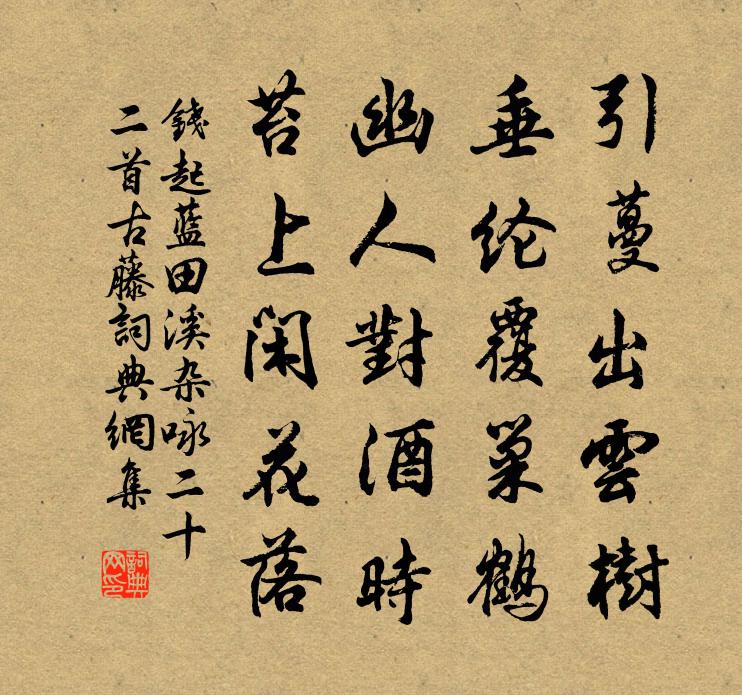 引蔓出雲樹
垂纶覆巢鶴
幽人對酒時
苔上閑花落
錢起藍田溪杂咏二十
二首古藤詞典網集
詞典网印